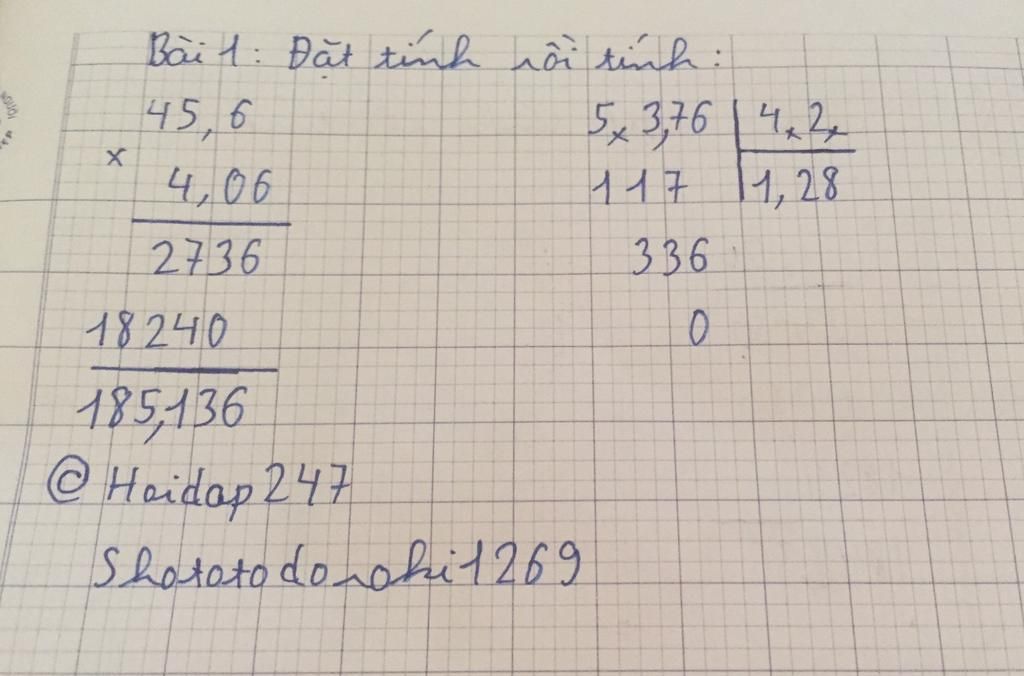 Bài 1: Đặt tính rồi tính:
45,6
x
4,06
2736
18240
185,136
5x3,76 4x2x
117 1,28
336
0
@Hoidap247
Shototodoroki1269